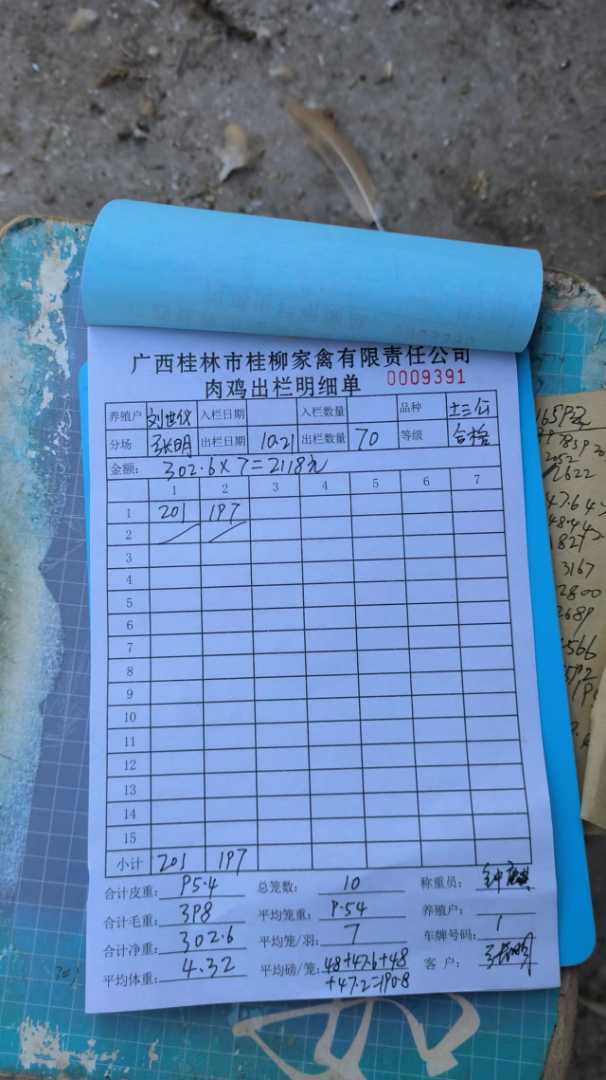 广西桂林市桂柳家禽有限责任公司
肉鸡出栏明细单 0009391
养殖户 入栏日期 入栏数量 品种 土三公
分场 张明 出栏日期 10.21 出栏数量 70 等级 合格
金额: 302.6×7=2118元
1 2 3 4 5 6 7
1 201 197
2
3
4
5
6
7
8
9
10
11
12
13
14
15
小计 201 197
合计皮重: 95.4 总笼数: 10 称重员:
合计毛重: 398 平均笼重: 9.54 养殖户:
合计净重: 302.6 平均笼/羽: 7 车牌号码: 1
平均体重: 4.32 平均磅/笼: 48+47.6+48 客 户:
+47.2=190.8
1659
2622
1827
3167
2800
2689